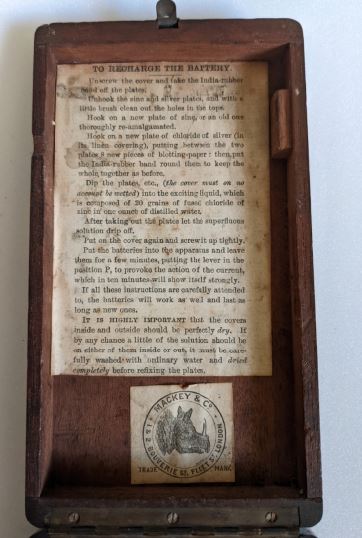 TO RECHARGE THE BATTERY.
Unscrew the cover and take the India-rubber
band off the plates.
Unhook the zinc and silver plates, and with a
little brush clean out the holes in the tops.
Hook on a new plate of zinc, or an old one
thoroughly re-amalgamated.
Hook on a new plate of chloride of silver (in
its linen covering), putting between the two
plates 8 new pieces of blotting-paper: then put
the India-rubber band round them to keep the
whole together as before.
Dip the plates, etc., (the cover must on no
account be wetted) into the exciting liquid, which
is composed of 20 grains of fused chloride of
zinc in one ounce of distilled water.
After taking out the plates let the superfluous
solution drip off.
Put on the cover again and screw it up tightly.
Put the batteries into the apparatus and leave
them for a few minutes, putting the lever in the
position P, to provoke the action of the current,
which in ten minutes will show itself strongly.
If all these instructions are carefully attended
to, the batteries will work as well and last as
long as new ones.
It is highly important that the covers
inside and outside should be perfectly dry. If
by any chance a little of the solution should be
on either of them inside or out, it must be care-
fully washed with ordinary water and dried
completely before refixing the plates.
MACKEY & Co
1 & 2 BOUVERIE St. FLEET St. LONDON
TRADE MARK